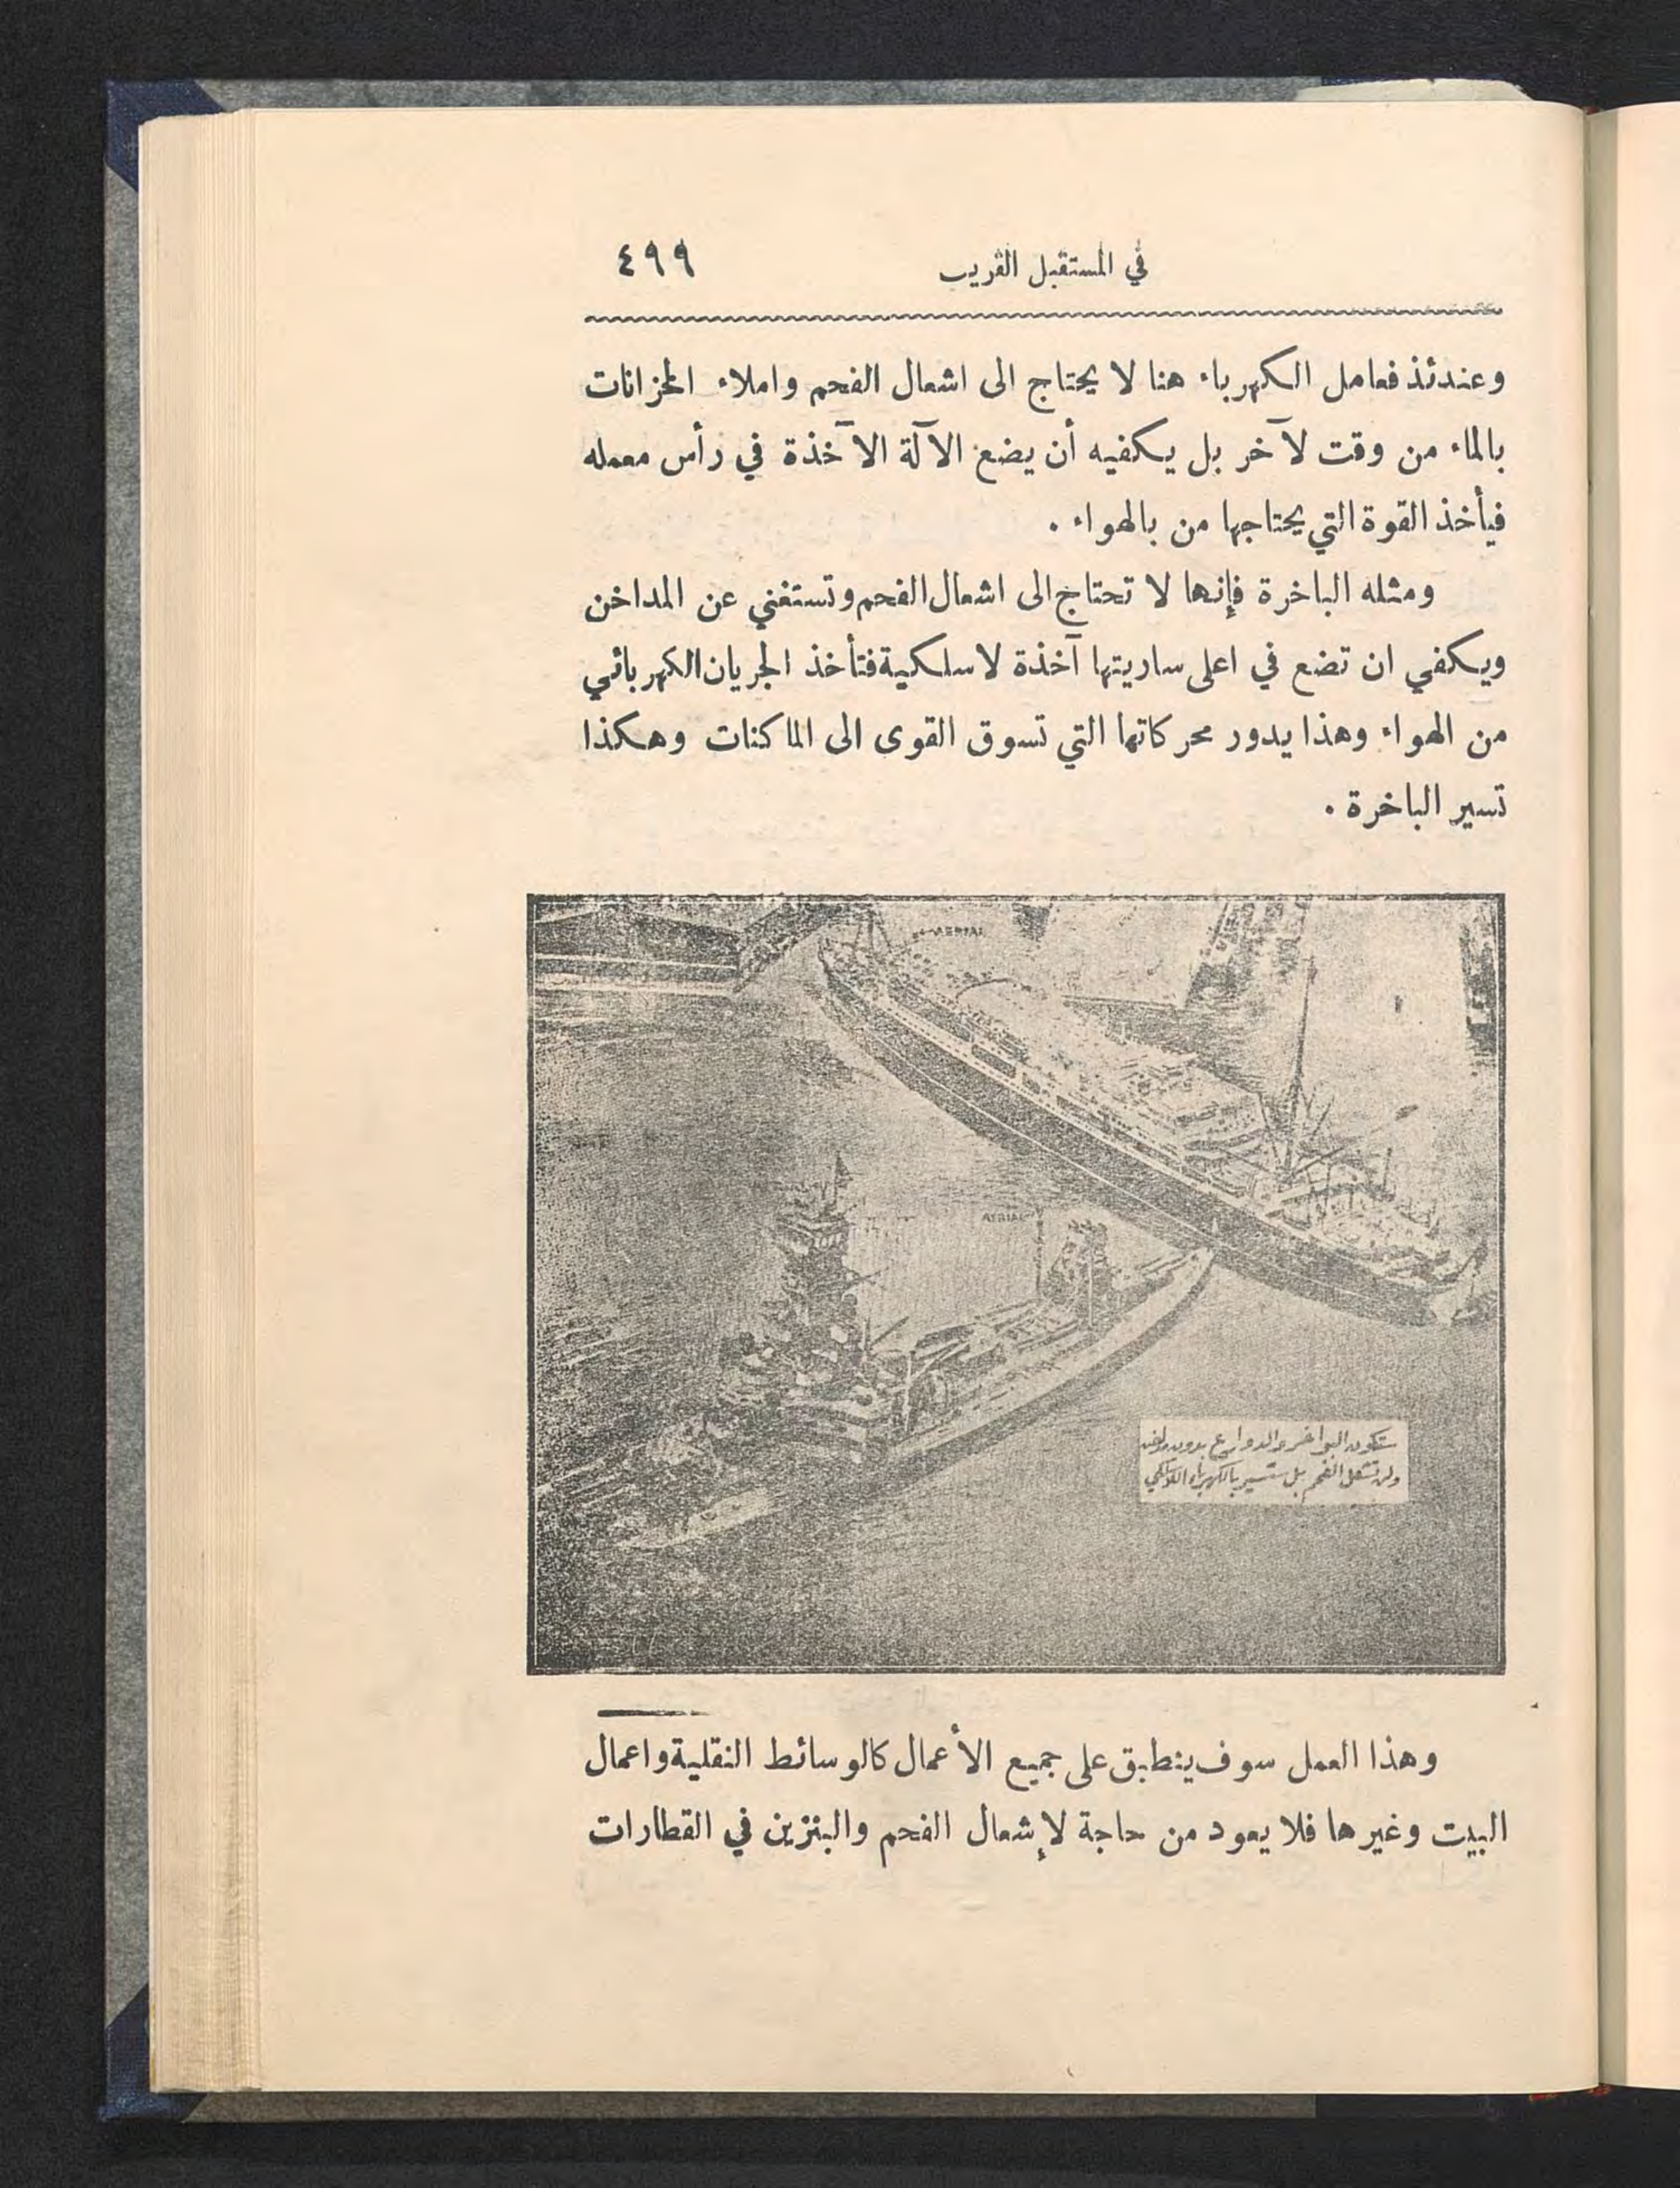 في المستقبل القريب ٤٩٩
وعندئذ فعامل الكهرباء هنا لا يحتاج الى اشعال الفحم واملاء الخزانات
بالماء من وقت لآخر بل يكفيه أن يضع الآلة الآخذة في رأس معمله
فيأخذ القوة التي يحتاجها من بالهواء .
ومثله الباخرة فإنها لا تحتاج الى اشعال الفحم وتستغني عن المداخن
ويكفي ان تضع في اعلى ساريتها آخذة لاسلكية فتأخذ الجريان الكهربائي
من الهواء وهذا يدور محركاتها التي تسوق القوى الى الماكنات وهكذا
تسير الباخرة .
AERIAL
AERIAL
ستكون البواخر والدوارع بدون
ولن تشعل الفحم بل ستسير بالكهرباء اللاسلكي
وهذا العمل سوف ينطبق على جميع الأعمال كالوسائط النقلية واعمال
البيت وغيرها فلا يعود من حاجة لإشعال الفحم والبنزين في القطارات